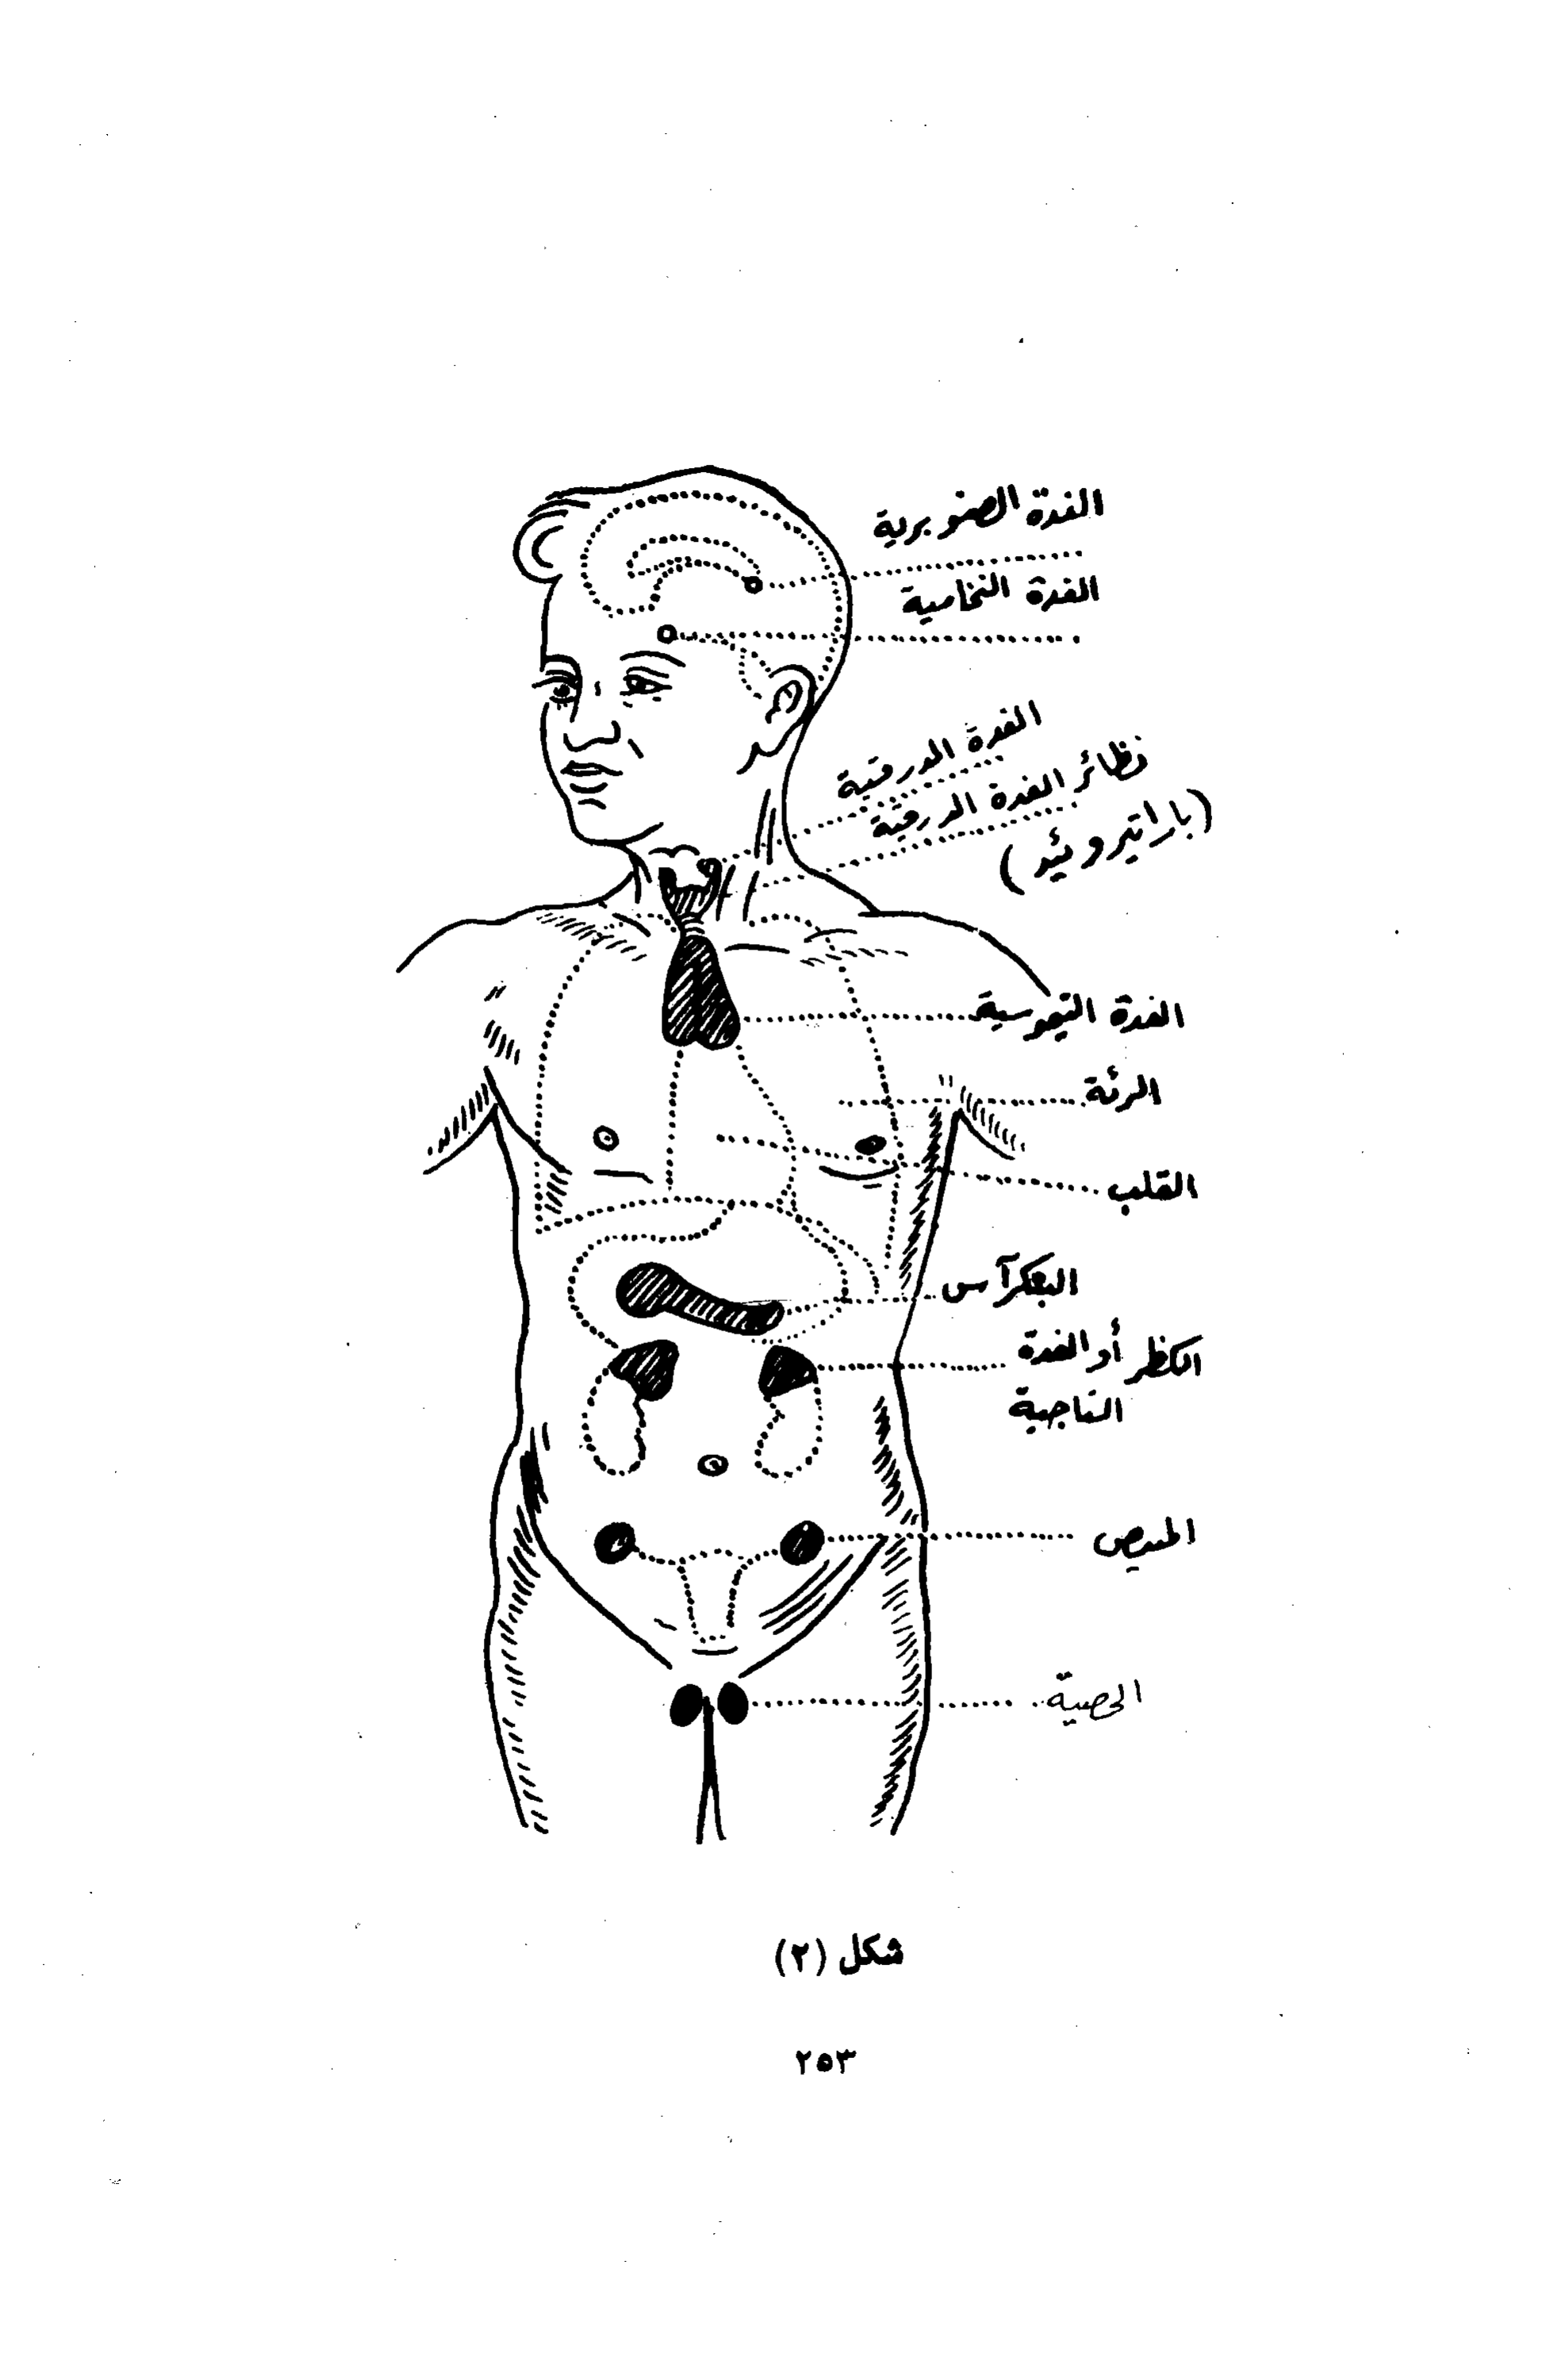 الغدة الصنوبرية
الغدة النخامية
الغدة الدرقية
نظائر الغدة الدرقية
(باراتيرويئد)
الغدة التيموسية
الرئة
القلب
البنكرآس
الكظر أو الغدة
التاجية
المبيض
الخصية
شكل (٢)
٢٥٣